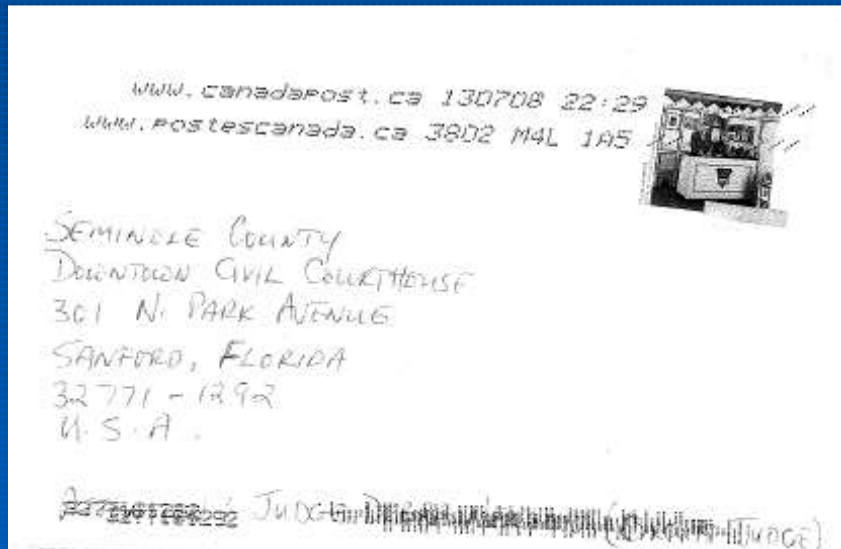 www.canadapost.ca 130708 22:29
www.postescanada.ca 3802 M4L 1A5
SEMINOLE COUNTY
DOWNTOWN CIVIL COURTHOUSE
301 N. PARK AVENUE
SANFORD, FLORIDA
32771-1292
U.S.A.
JUDGE JUDGE)